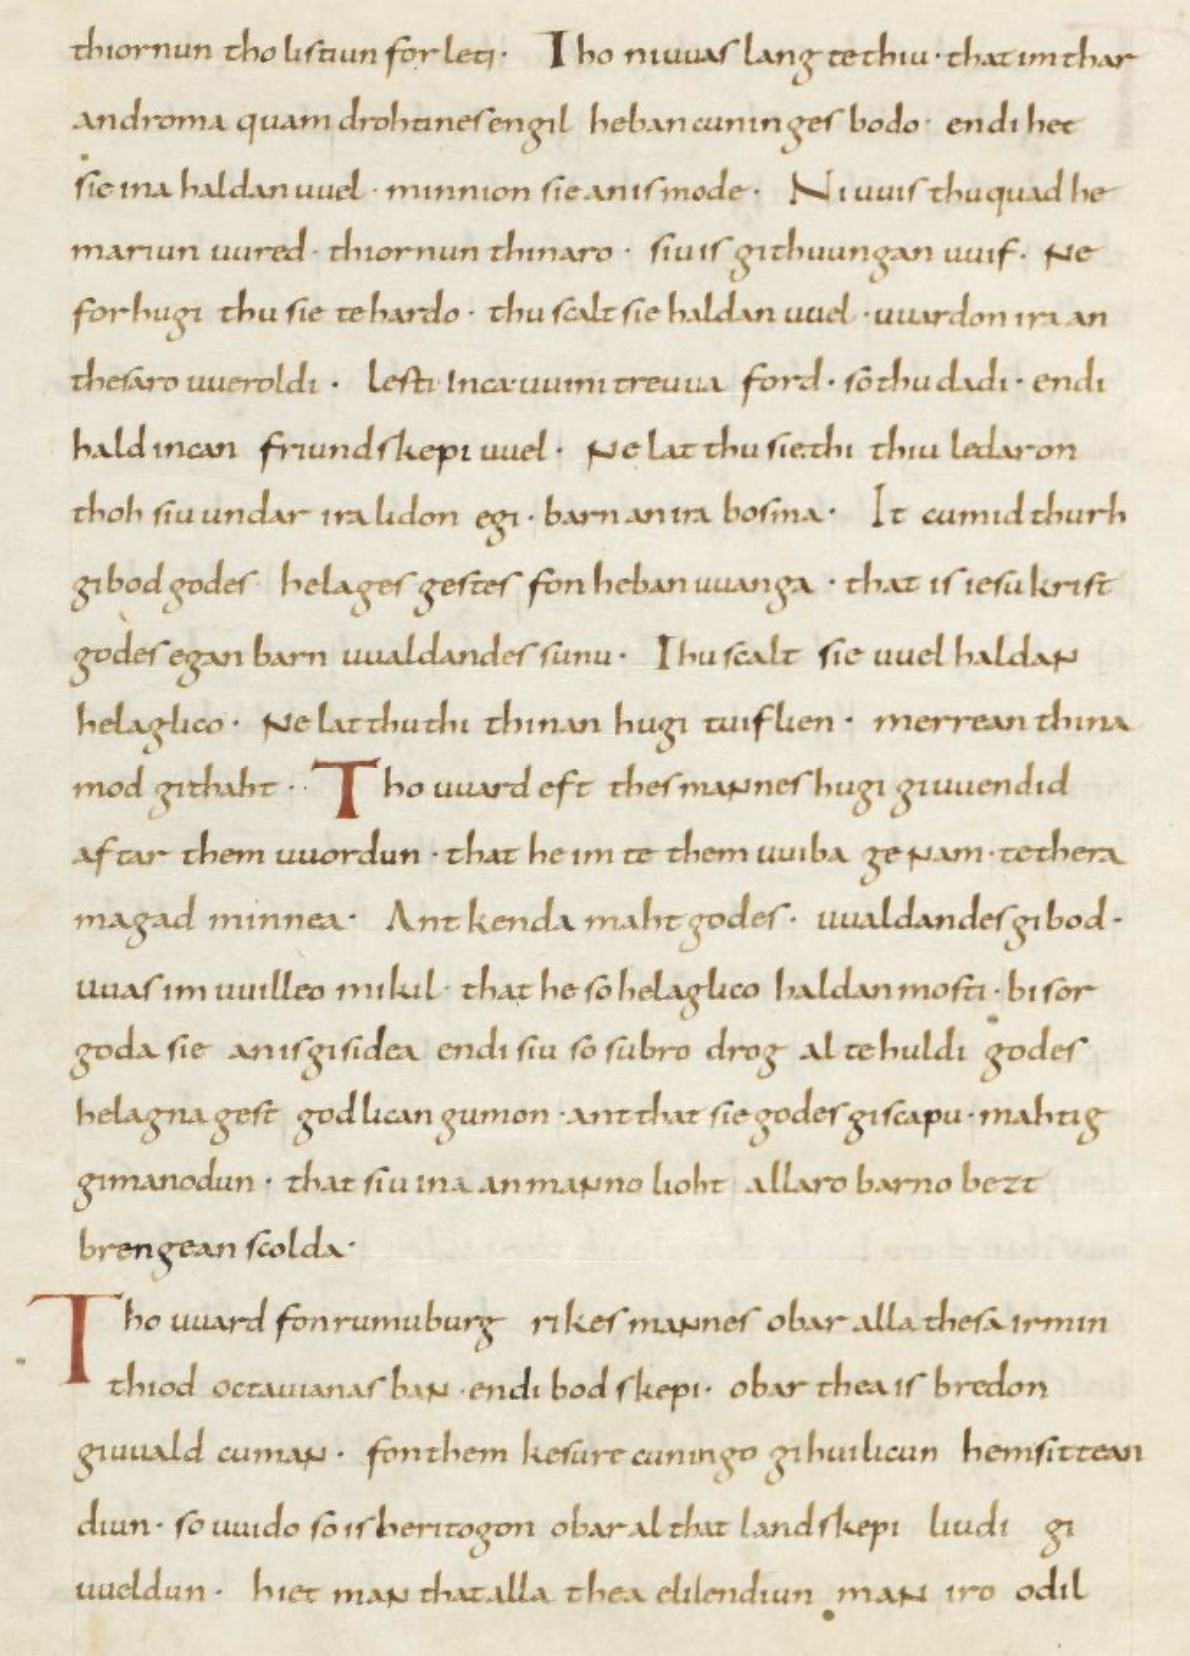 thiornun tho listiun forleti · Tho niuuas lang te thiu · that im thar
an droma quam drohtines engil heban cuninges bodo · endi het
sie ina haldan uuel · minnion sie an is mode · Ni uuis thu quad he
mariun uured · thiornun thinaro · siu is githuungan uuif · Ne
forhugi thu sie te hardo · thu scalt sie haldan uuel · uuardon ira an
thesaro uueroldi · lesti inca uuini treuua ford · so thu dadi · endi
hald incan friundskepi uuel · Ne lat thu sie thi thiu ledaron
thoh siu undar ira lidon egi · barn an ira bosma · It cumid thurh
gibod godes helages gestes fon heban uuanga · that is iesu krist
godes egan barn uualdandes sunu · Thu scalt sie uuel haldan
helaglico · Ne lat thu thi thinan hugi tuiflien · merrean thina
mod githaht · · Tho uuard eft thes mannes hugi giuuendid
aftar them uuordun · that he im te them uuiba genam · te thera
magad minnea · Antkenda maht godes · uualdandes gibod ·
uuas im uuilleo mikil · that he so helaglico haldan mosti · bisor
goda sie an is gisidea endi siu so subro drog al te huldi godes
helagna gest godlican gumon · ant that sie godes giscapu · mahtig
gimanodun · that siu ina an manno lioht allaro barno bezt
brengean scolda ·
Tho uuard fon rumuburg rikes mannes obar alla thesa irmin
thiod octauianas ban · endi bodskepi · obar thea is bredon
giuuald cuman · fon them kesure cuningo gihuilicun hemsittean
diun · so uuido so is heritogon obar al that landskepi liudi gi
uueldun · hiet man that alla thea elilendiun man iro odil